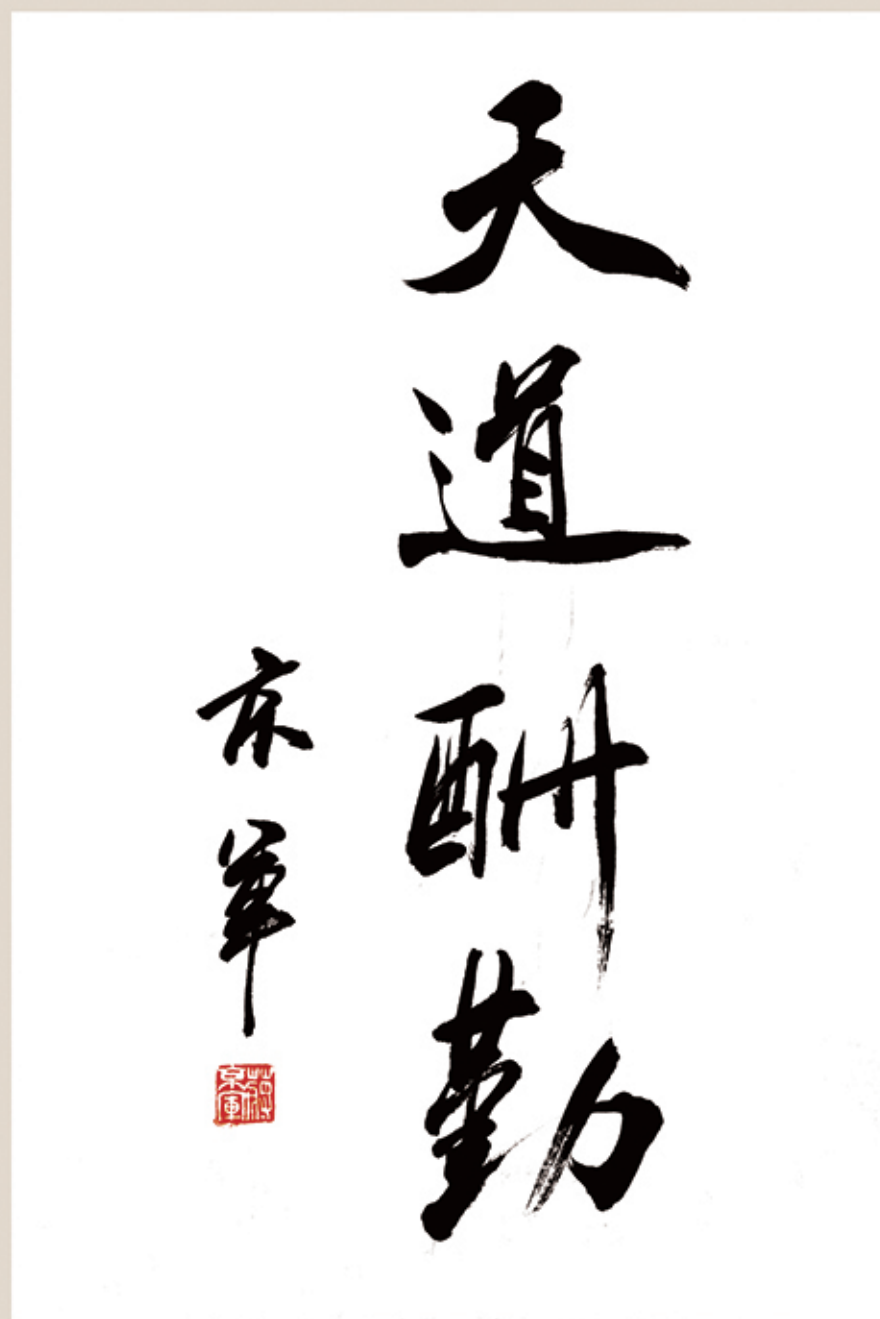 天道酬勤
京军